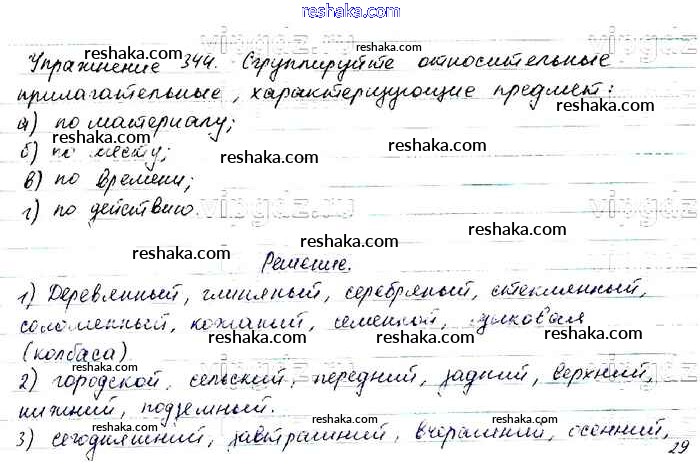 reshaka.com
Упражнение 344. Сгруппируйте относительные
reshaka.com
reshaka.com
прилагательные, характеризующие предмет:
reshaka.com
а) по материалу;
reshaka.com
б) по месту;
reshaka.com
reshaka.com
в) по времени;
reshaka.com
vipgdz.ru
г) по действию.
reshaka.com
reshaka.com
Решение.
reshaka.com
1) Деревянный, глиняный, серебряный, стеклянный,
reshaka.com
соломенный, кожаный, семенной, языковая
reshaka.com
(колбаса)
reshaka.com
2) городской, сельский, передний, задний, верхний,
нижний, подземный.
reshaka.com
reshaka.com
3) сегодняшний, завтрашний, вчерашний, осенний,
29
reshaka.com